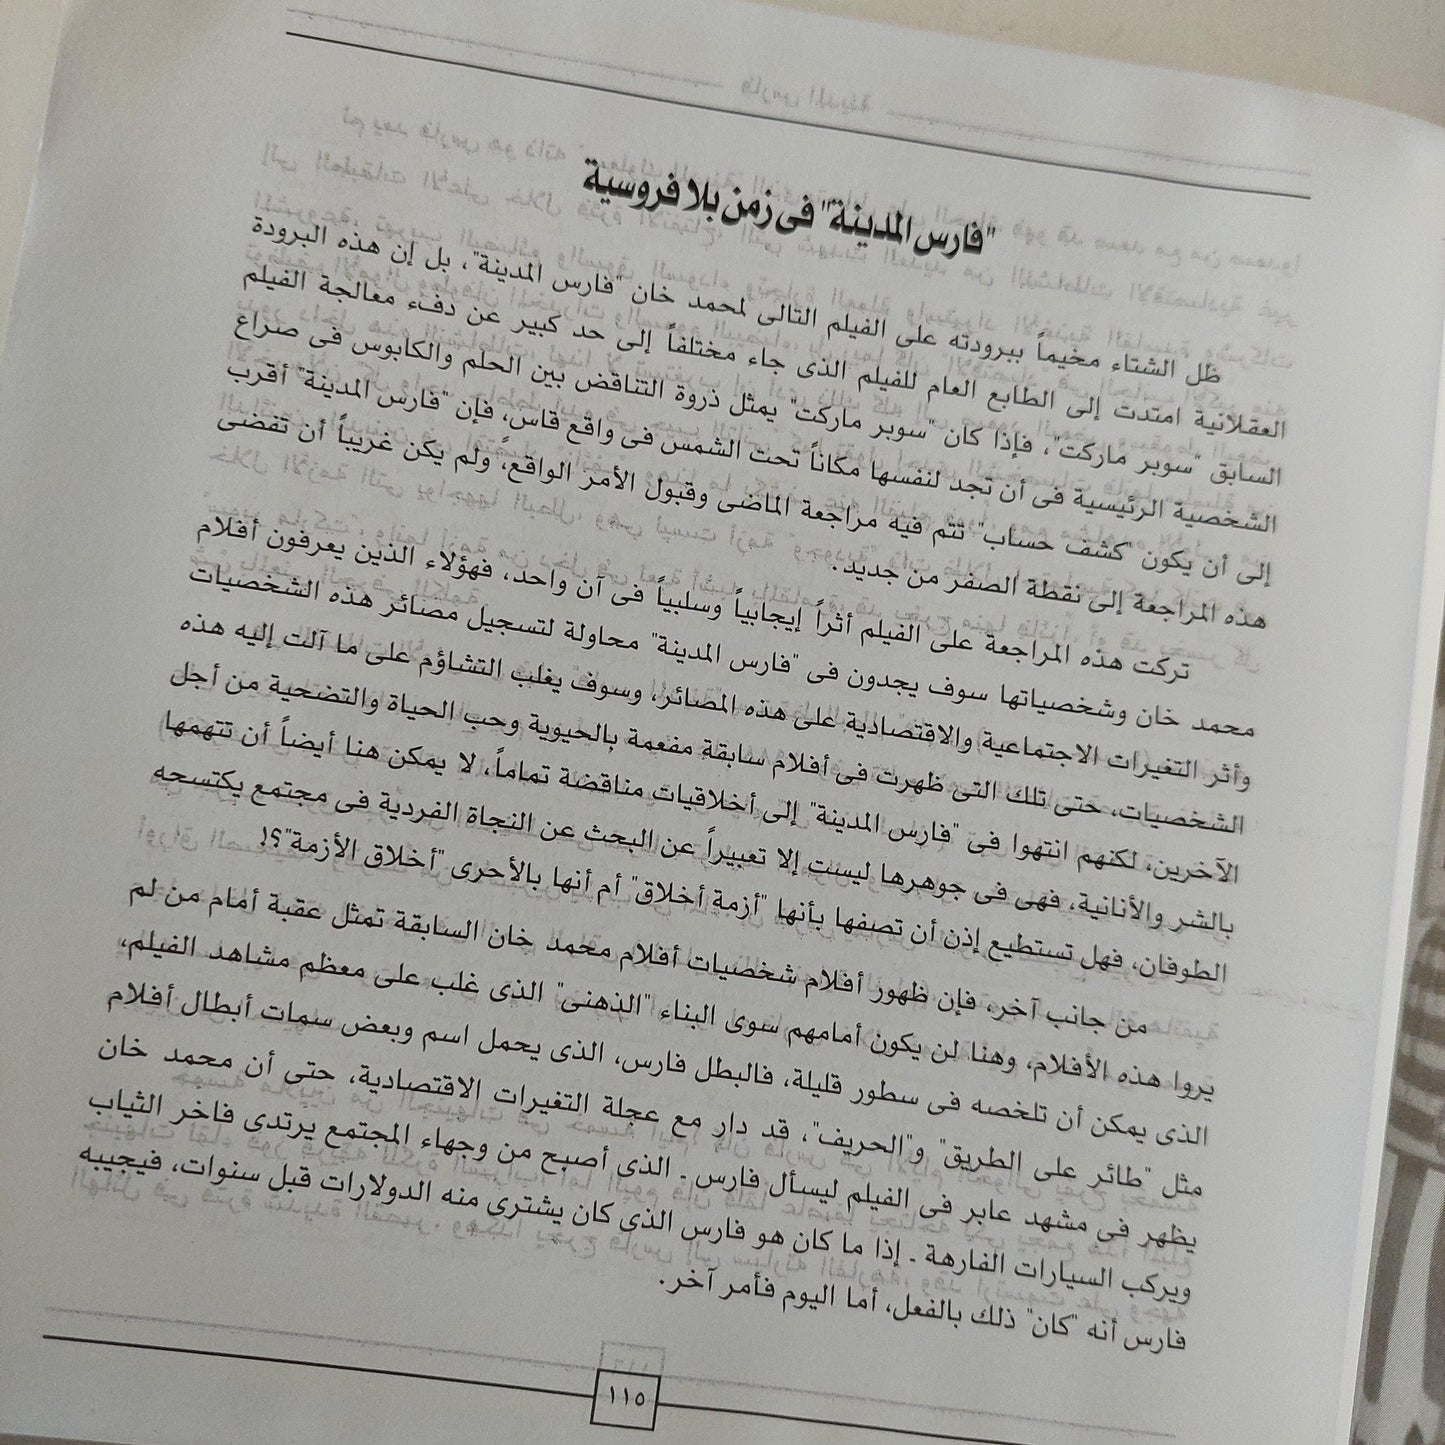 "فارس المدينة" فى زمن بلا فروسية
ظل الشتاء مخيماً ببرودته على الفيلم التالى لمحمد خان "فارس المدينة"، بل إن هذه البرودة
العقلانية امتدت إلى الطابع العام للفيلم الذى جاء مختلفاً إلى حد كبير عن دفء معالجة الفيلم
السابق "سوبر ماركت"، فإذا كان "سوبر ماركت" يمثل ذروة التناقض بين الحلم والكابوس فى صراع
الشخصية الرئيسية فى أن تجد لنفسها مكاناً تحت الشمس فى واقع قاس، فإن "فارس المدينة" أقرب
إلى أن يكون "كشف حساب" تتم فيه مراجعة الماضى وقبول الأمر الواقع، ولم يكن غريباً أن تفضى
هذه المراجعة إلى نقطة الصفر من جديد.
تركت هذه المراجعة على الفيلم أثراً إيجابياً وسلبياً فى آن واحد، فهؤلاء الذين يعرفون أفلام
محمد خان وشخصياتها سوف يجدون فى "فارس المدينة" محاولة لتسجيل مصائر هذه الشخصيات
وأثر التغيرات الاجتماعية والاقتصادية على هذه المصائر، وسوف يغلب التشاؤم على ما آلت إليه هذه
الشخصيات، حتى تلك التى ظهرت فى أفلام سابقة مفعمة بالحيوية وحب الحياة والتضحية من أجل
الآخرين، لكنهم انتهوا فى "فارس المدينة" إلى أخلاقيات مناقضة تماماً، لا يمكن هنا أيضاً أن تتهمها
بالشر والأنانية، فهى فى جوهرها ليست إلا تعبيراً عن البحث عن النجاة الفردية فى مجتمع يكتسحه
الطوفان، فهل تستطيع إذن أن تصفها بأنها "أزمة أخلاق" أم أنها بالأحرى "أخلاق الأزمة"؟!
من جانب آخر، فإن ظهور أفلام شخصيات أفلام محمد خان السابقة تمثل عقبة أمام من لم
يروا هذه الأفلام، وهنا لن يكون أمامهم سوى البناء "الذهنى" الذى غلب على معظم مشاهد الفيلم،
الذى يمكن أن تلخصه فى سطور قليلة، فالبطل فارس، الذى يحمل اسم وبعض سمات أبطال أفلام
مثل "طائر على الطريق" و"الحريف"، قد دار مع عجلة التغيرات الاقتصادية، حتى أن محمد خان
يظهر فى مشهد عابر فى الفيلم ليسأل فارس ـ الذى أصبح من وجهاء المجتمع يرتدى فاخر الثياب
ويركب السيارات الفارهة ـ إذا ما كان هو فارس الذى كان يشترى منه الدولارات قبل سنوات، فيجيبه
فارس أنه "كان" ذلك بالفعل، أما اليوم فأمر آخر.
١١٥